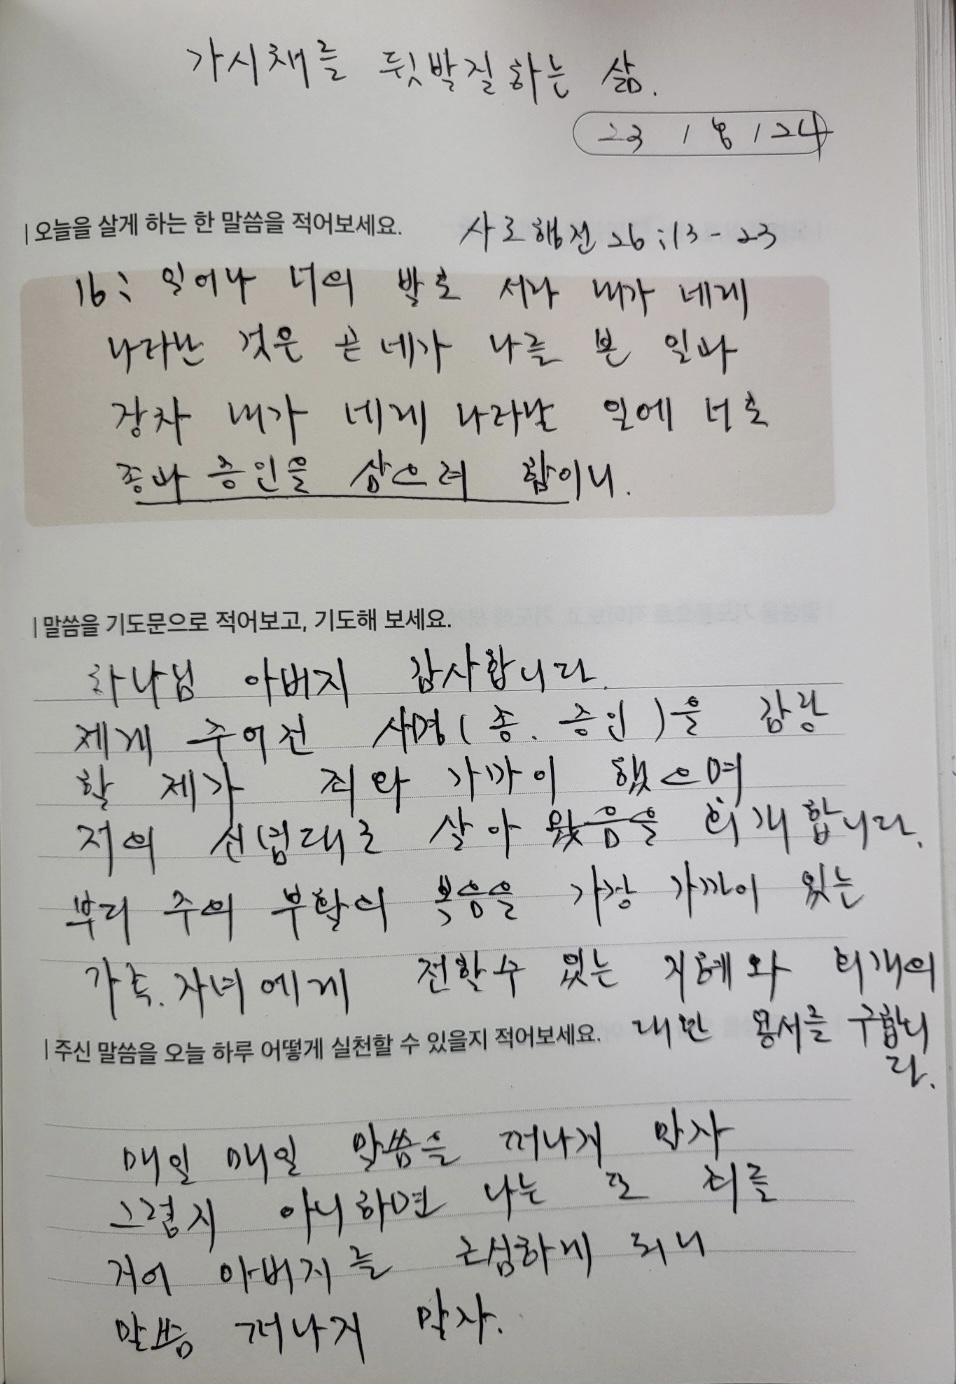 가시채를 뒷발질하는 삶.
23 / 8 / 24
오늘을 살게 하는 한 말씀을 적어보세요. 사도행전 26:13-23
16: 일어나 너의 발로 서라 내가 네게
나타난 것은 곧 네가 나를 본 일과
장차 내가 네게 나타날 일에 너로
종과 증인을 삼으려 함이니.
말씀을 기도문으로 적어보고, 기도해 보세요.
하나님 아버지 감사합니다.
제게 주어진 사명(종. 증인)을 감당
할 제가 죄와 가까이 했으며
저의 신념대로 살아 왔음을 회개합니다.
부디 주의 부활의 복음을 가장 가까이 있는
가족. 자녀에게 전할수 있는 지혜와 회개의
대한 용서를 구합니
다.
주신 말씀을 오늘 하루 어떻게 실천할 수 있을지 적어보세요.
매일 매일 말씀을 떠나게 말자
그렇지 아니하면 나는 또 죄를
지어 아버지를 근심하게 되니
말씀 떠나지 말자.